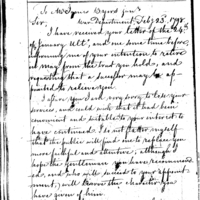 To
Sir, War Department Feb. 23d 1798
I have received your letter of the 24th
of January Ult. and one some time before,
informing me of your intention to retire
from the post you hold, and
requesting that a successor may be ap
pointed to relieve you.
I assure you I am very sorry to lose your
services, and could wish that it had been
convenient and suitable to your interest to
have continued. I do not flatter myself
that the public will find one to replace you
more faithful and attentive, although I
hope the gentleman you have recommend
ed, and who will succeed to your appoint
ment, will the character you
have given of him.